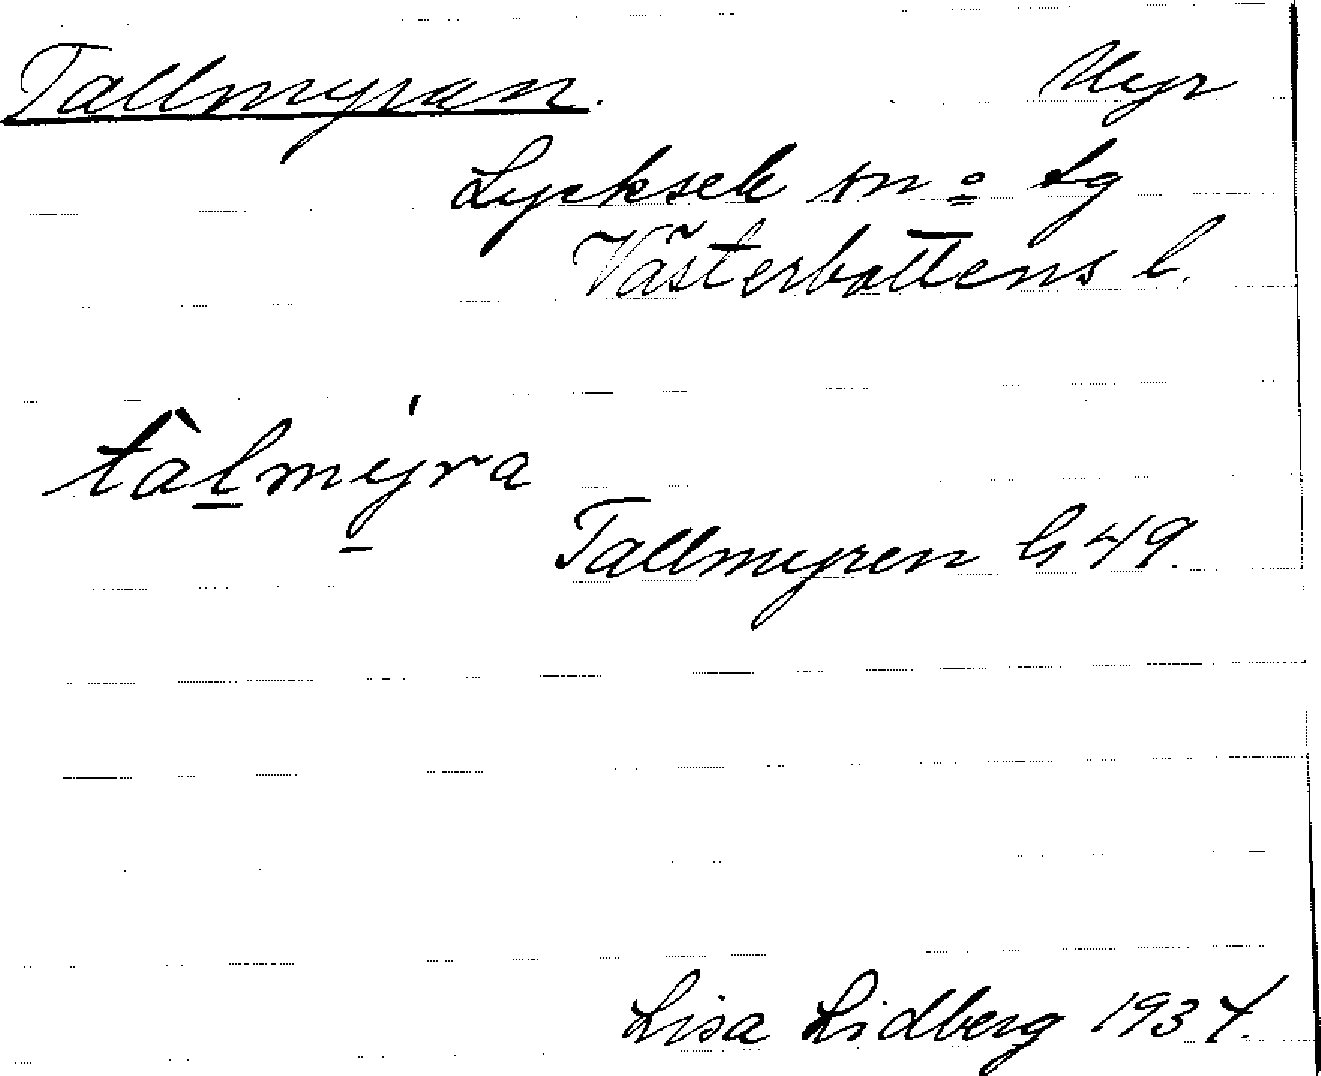 Tallmyran. Myr
Lycksele sn o. lg
Västerbottens l.
tàl̲mý̲ra
Tallmyren G 49.
Lisa Lidberg 1934.